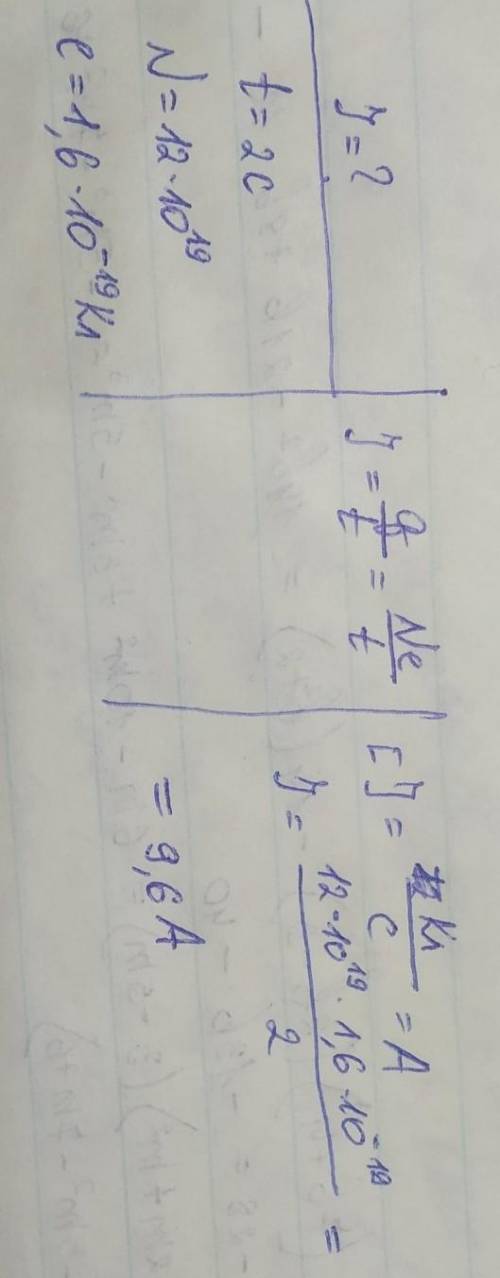 J = ?
t = 2c
N = 12·10¹⁹
e = 1,6·10⁻¹⁹ Кл
J = q/t = Ne/t
[J] = Кл/c = A
J = 12·10¹⁹·1,6·10⁻¹⁹/2 =
= 9,6 A